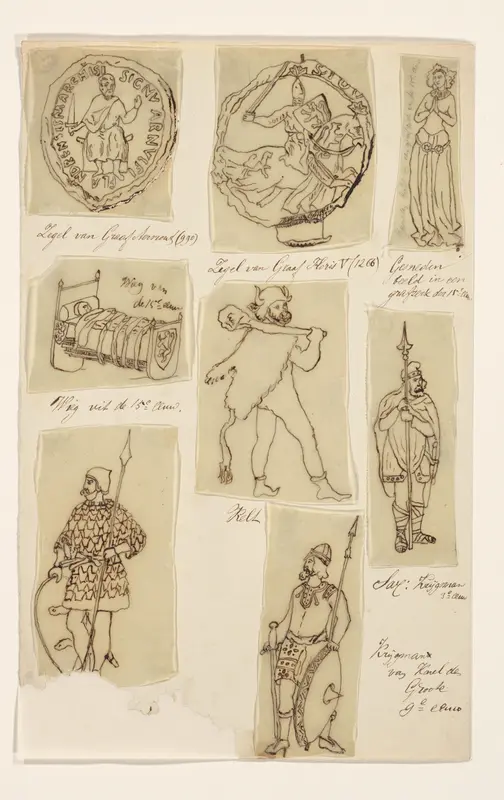 SIGNV ARNVLFI
MARCHISI
Zegel van Graaf Arnoud (990)
Zegel van Graaf Floris V (1266)
Gesneden
beeld in een
grafzerk der 15e eeuw
Wieg van
de 15e eeuw
Wieg uit de 15e eeuw.
Kelt
Sax: Krijgsman
3e eeuw
Krijgsman
van Karel de
Groote
9e eeuw